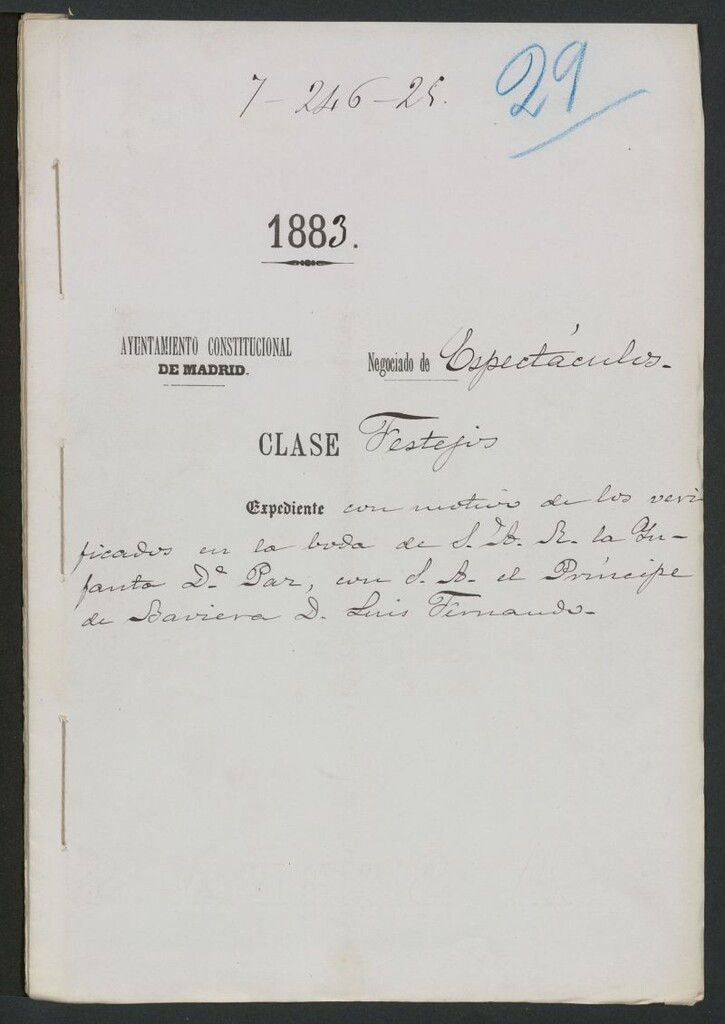 7-246-25.
29
1883.
AYUNTAMIENTO CONSTITUCIONAL
DE MADRID.
Negociado de Espectáculos-
CLASE Festejos
Expediente con motivo de los veri
ficados en la boda de S. A. R. la In-
fanta Dª Paz, con S. A. el Príncipe
de Baviera D. Luis Fernando-